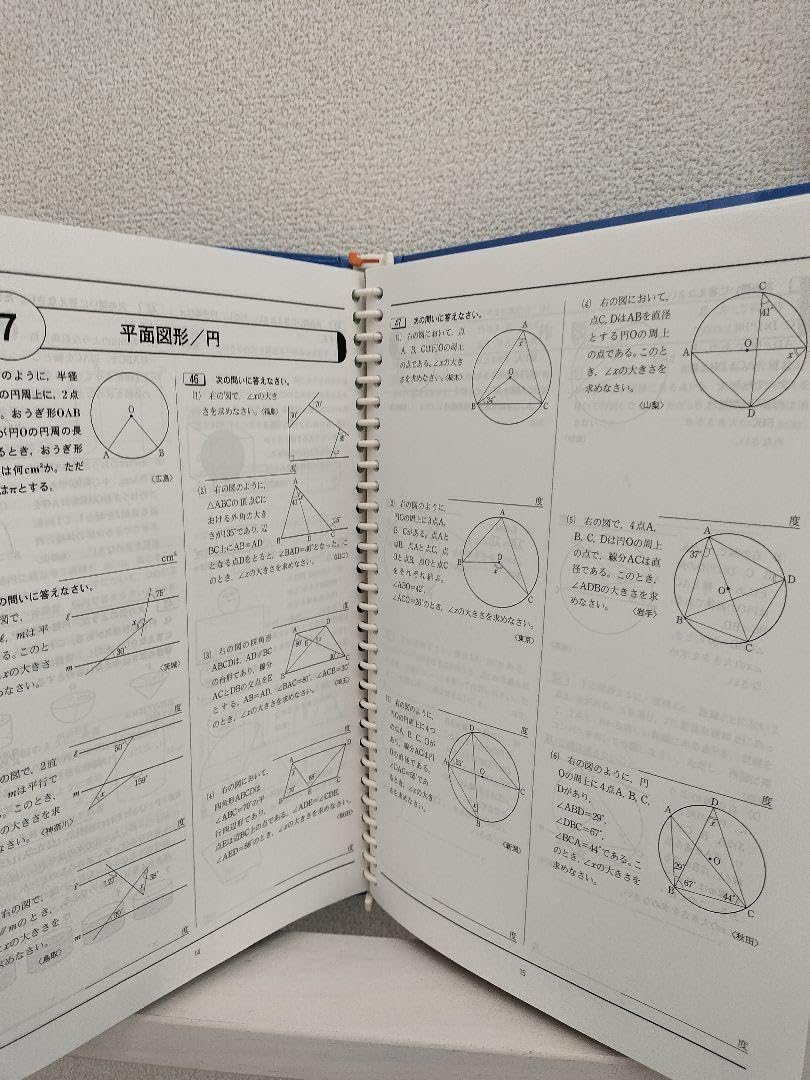 7
平面図形／円
のように，半径
の円周上に，2点
。おうぎ形OAB
が円Oの円周の長
るとき，おうぎ形
は何cm²か。ただ
はπとする。
〈広島〉
O
A
B
cm²
の問いに答えなさい。
図で，
ℓ，mは平
る。このと
xの大きさ
めなさい。
〈茨城〉
ℓ
75°
x
m
30°
度
の図で，2直
mは平行で
。このとき，
の大きさを求
さい。〈神奈川〉
ℓ
50°
m
x
159°
度
右の図で，
//mのとき，
xの大きさを
めなさい。
〈鳥取〉
m
度
46 次の問いに答えなさい。
(1) 右の図で，∠xの大き
さを求めなさい。〈福島〉
70°
度
(2) 右の図のように，
△ABCの頂点Cに
おける外角の大き
さが135°であり，辺
BC上にAB＝AD
となる点Dをとると，∠BAD＝40°となった。こ
のとき，∠xの大きさを求めなさい。
A
B
D
C
度
(3) 右の図の四角形
ABCDは，AD//BC
の台形であり，線分
ACとDBの交点をE
とする。AB＝AD，∠BAC＝80°，∠ACB＝30°
のとき，∠xの大きさを求めなさい。
〈埼玉〉
A
D
E
x
B
C
度
(4) 右の図において，
四角形ABCDは
∠ABC＝70°の平
行四辺形であり，
点Eは辺BC上の点である。∠ADE＝∠CDE，
∠AED＝88°のとき，∠xの大きさを求めなさい。
〈秋田〉
A
D
B
E
C
度
14
47 次の問いに答えなさい。
右の図において，点
A，B，Cは円Oの周上
の点である。∠xの大き
さを求めなさい。〈栃木〉
A
x
O
B
C
度
右の図のように，
円Oの周上に3点A，
B，Cがある。点Aと
点B，点Aと点C，点
Oと点B，点Oと点C
をそれぞれ結ぶ。
∠ABO＝42°，
のとき，∠xの大きさを求めなさい。
〈東京〉
A
B
O
x
C
度
右の図のように，
円Oの円周上に4つ
の点A，B，C，Dが
あり，線分ACは円
Oの直径である。
であ
るとき，∠xの大き
さを求めなさい。
〈新潟〉
D
A
O
C
x
B
度
(4) 右の図において，
点C，DはABを直径
とする円Oの周上
の点である。このと
き，∠xの大きさを
求めなさい。
〈山梨〉
C
41°
A
O
x
D
度
(5) 右の図で，4点A，
B，C，Dは円Oの周上
の点で，線分ACは直
径である。このとき，
∠ADBの大きさを求
めなさい。
〈岩手〉
A
37°
D
O
B
C
度
(6) 右の図のように，円
Oの周上に4点A，B，C，
Dがあり，
∠ABD＝29°，
∠DBC＝67°，
∠BCA＝44°である。こ
のとき，∠xの大きさを
求めなさい。
〈秋田〉
D
A
x
O
29°
B
67°
44°
C
度
15